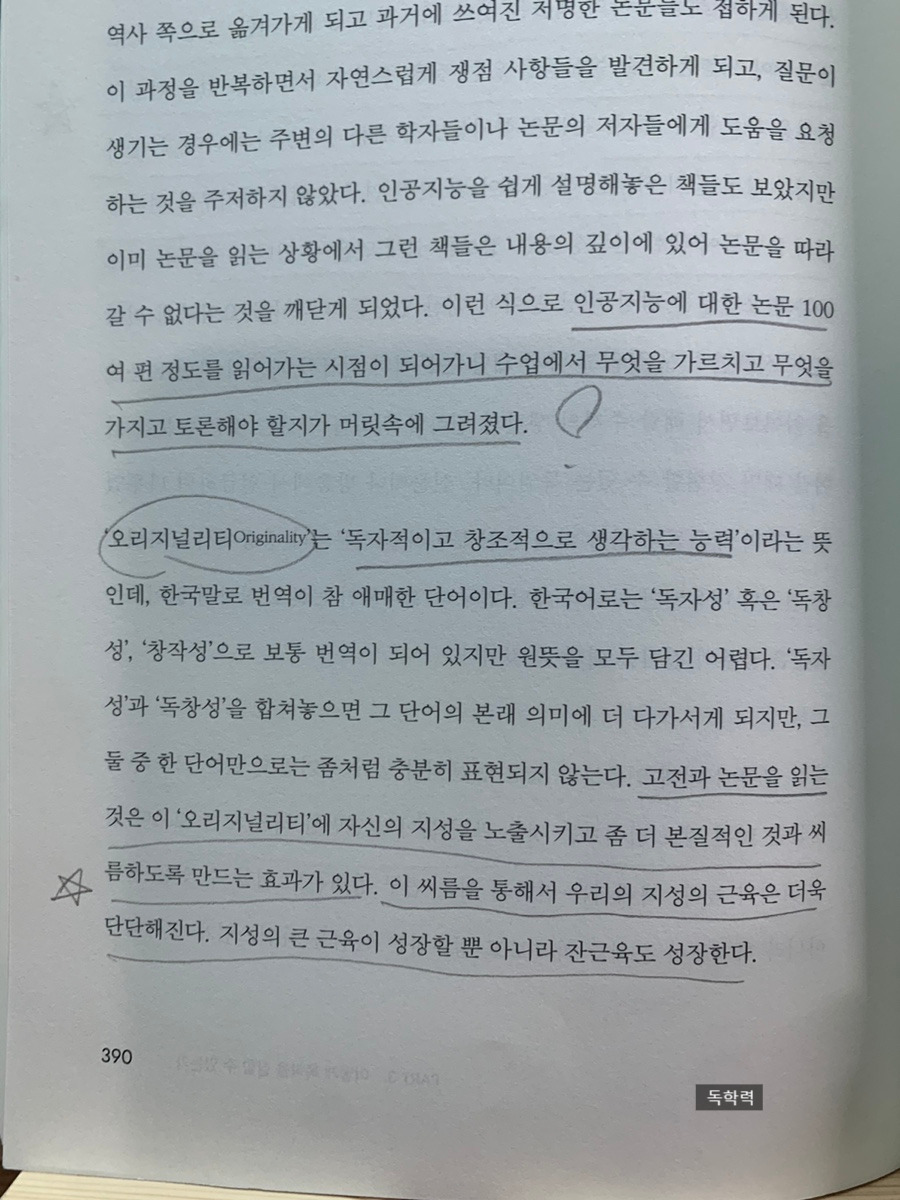 역사 쪽으로 옮겨가게 되고 과거에 쓰여진 저명한 논문들도 접하게 된다.
이 과정을 반복하면서 자연스럽게 쟁점 사항들을 발견하게 되고, 질문이
생기는 경우에는 주변의 다른 학자들이나 논문의 저자들에게 도움을 요청
하는 것을 주저하지 않았다. 인공지능을 쉽게 설명해놓은 책들도 보았지만
이미 논문을 읽는 상황에서 그런 책들은 내용의 깊이에 있어 논문을 따라
갈 수 없다는 것을 깨닫게 되었다. 이런 식으로 인공지능에 대한 논문 100
여 편 정도를 읽어가는 시점이 되어가니 수업에서 무엇을 가르치고 무엇을
가지고 토론해야 할지가 머릿속에 그려졌다.
‘오리지널리티Originality’는 ‘독자적이고 창조적으로 생각하는 능력’이라는 뜻
인데, 한국말로 번역이 참 애매한 단어이다. 한국어로는 ‘독자성’ 혹은 ‘독창
성’, ‘창작성’으로 보통 번역이 되어 있지만 원뜻을 모두 담긴 어렵다. ‘독자
성’과 ‘독창성’을 합쳐놓으면 그 단어의 본래 의미에 더 다가서게 되지만, 그
둘 중 한 단어만으로는 좀처럼 충분히 표현되지 않는다. 고전과 논문을 읽는
것은 이 ‘오리지널리티’에 자신의 지성을 노출시키고 좀 더 본질적인 것과 씨
름하도록 만드는 효과가 있다. 이 씨름을 통해서 우리의 지성의 근육은 더욱
단단해진다. 지성의 큰 근육이 성장할 뿐 아니라 잔근육도 성장한다.
390
독학력